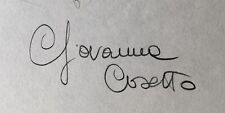 Giovanna
Cosetto